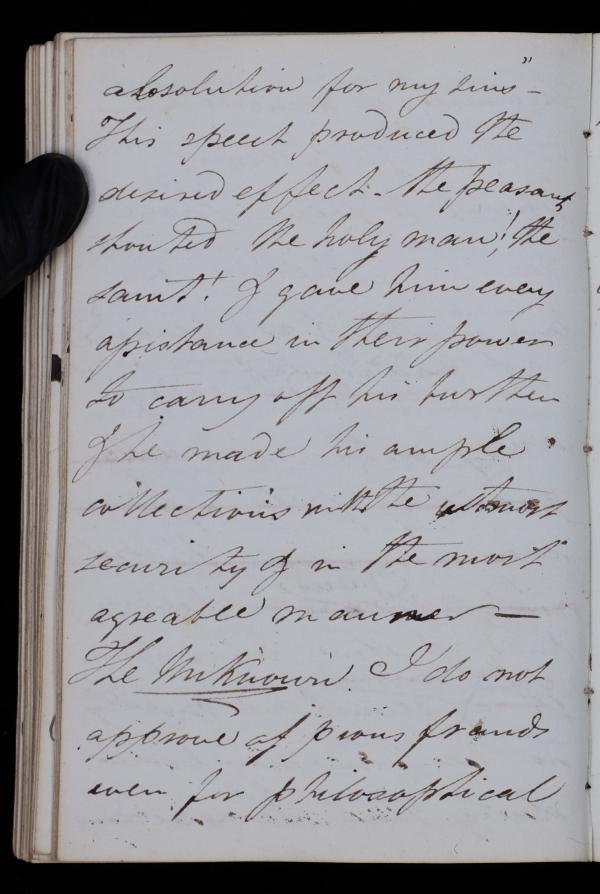 absolution for my sins - "
This speech produced the
desired effect - the peasants
shouted the holy man! the
saint! & gave him every
assistance in their power
to carry off his burthen
& he made his ample
collections with the utmost
security & in the most
agreable manner —
The Unknown. I do not
approve of pious frauds
even for philosophical